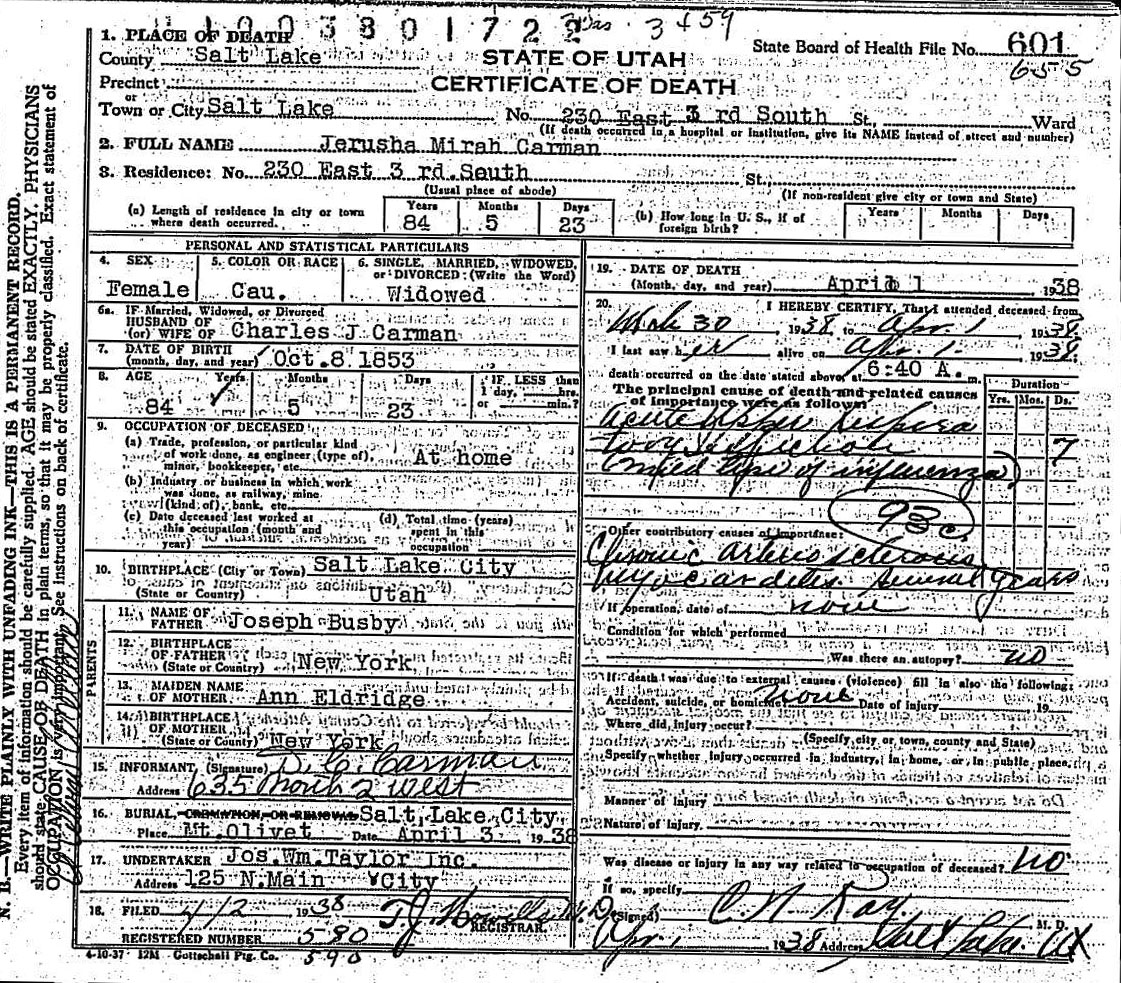 1003801722 3459
1. PLACE OF DEATH
County Salt Lake
STATE OF UTAH
State Board of Health File No. 601
655
Precinct
CERTIFICATE OF DEATH
or
Town or City Salt Lake No. 230 East 3 rd South St., Ward
(If death occurred in a hospital or institution, give its NAME instead of street and number)
2. FULL NAME Jerusha Mirah Carman
3. Residence: No. 230 East 3 rd. South St.
(Usual place of abode) (If non-resident give city or town and State)
(a) Length of residence in city or town where death occurred. Years 84 Months 5 Days 23
(b) How long in U. S., if of foreign birth? Years Months Days
PERSONAL AND STATISTICAL PARTICULARS
4. SEX Female
5. COLOR OR RACE Cau.
6. SINGLE, MARRIED, WIDOWED, or DIVORCED: (Write the Word) Widowed
6a. IF Married, Widowed, or Divorced
HUSBAND OF
(or) WIFE OF Charles J Carman
7. DATE OF BIRTH
(month, day, and year) Oct. 8 1853
8. AGE Years 84 Months 5 Days 23
IF LESS than 1 day, hrs. or min.?
9. OCCUPATION OF DECEASED
(a) Trade, profession, or particular kind
of work done, as engineer (type of),
miner, bookkeeper, etc. At home
(b) Industry or business in which work
was done, as railway, mine
(kind of), bank, etc.
(c) Date deceased last worked at
this occupation (month and
year)
(d) Total time (years)
spent in this
occupation
10. BIRTHPLACE (City or Town) Salt Lake City
(State or Country) Utah
PARENTS
11. NAME OF
FATHER Joseph Busby
12. BIRTHPLACE
OF FATHER
(State or Country) New York
13. MAIDEN NAME
OF MOTHER Ann Eldridge
14. BIRTHPLACE
OF MOTHER
(State or County) New York
15. INFORMANT (Signature) D. C. Carman
Address 635 North 2 West
16. BURIAL, CREMATION, OR REMOVAL Salt Lake City
Place Mt. Olivet Date April 3 1938
17. UNDERTAKER Jos. Wm. Taylor Inc.
Address 125 N. Main City
18. FILED 4/2 1938 T. J. Howells M. D.
REGISTRAR.
REGISTERED NUMBER 590
4-10-37 12M Gottschall Ptg. Co. 590
19. DATE OF DEATH
(Month, day, and year) April 1 1938
20. I HEREBY CERTIFY, That I attended deceased from
Mch 30, 1938, to Apr. 1 1938.
I last saw her alive on Apr 1. 1938,
death occurred on the date stated above, at 6:40 A. m.
The principal cause of death and related causes
of importance were as follows:
Duration
Yrs. Mos. Ds.
Acute Upper Respira
tory Infection 7
(mixed type of influenza)
93c.
Other contributory causes of importance:
Chronic arteriosclerosis
Myocarditis Several years
If operation, date of none
Condition for which performed
Was there an autopsy? no
If death was due to external causes (violence) fill in also the following:
Accident, suicide, or homicide? None Date of injury 19
Where did injury occur?
(Specify city or town, county and State)
Specify whether injury occurred in industry, in home, or in public place.
Manner of injury
Nature of injury
Was disease or injury in any way related to occupation of deceased? No
If so, specify
(Signed) C. N. Ray M. D.
Apr. 1 1938 Address Salt Lake Ut
N. B.—WRITE PLAINLY WITH UNFADING INK—THIS IS A PERMANENT RECORD.
Every item of information should be carefully supplied. AGE should be stated EXACTLY. PHYSICIANS
should state CAUSE OF DEATH in plain terms, so that it may be properly classified. Exact statement of
OCCUPATION is very important. See instructions on back of certificate.